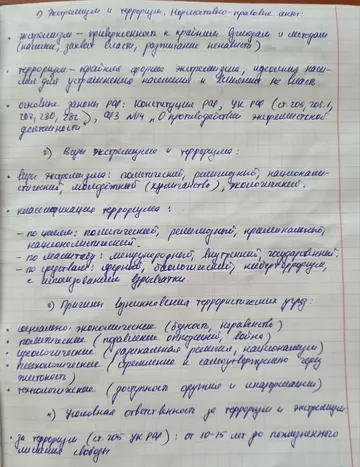 1) Экстремизм и терроризм. Нормативно-правовые акты:
• экстремизм – приверженность к крайним взглядам и методам
(насилие, захват власти, разжигание ненависти)
• терроризм – крайняя форма экстремизма, идеология наси-
лия для устрашения населения и влияния на власть
• основные законы РФ: Конституция РФ, УК РФ (ст. 205, 205.1,
280, 282), ФЗ №114 „О противодействии экстремистской
деятельности"
2) Виды экстремизма и терроризма:
• виды экстремизма: политический, религиозный, националис-
тический, молодёжный, экологический.
• классификация терроризма:
- по целям: политический, религиозный, криминальный,
националистический.
- по масштабу: международный, внутренний, государственный.
- по средствам: ядерный, экологический, кибертерроризм,
с использованием взрывчатки.
3) Причины возникновения террористических угроз:
социально-экономические (бедность, неравенство)
• политические (подавление оппозиции, война)
• идеологические (радикальная религия, национализм)
• психологические (стремление к самоутверждению через
жестокость)
• технологические (доступность оружия и информации)
4) Уголовная ответственность за терроризм и экстремизм
• за терроризм (ст. 205 УК РФ): от 10-15 лет до пожизненного
лишения свободы